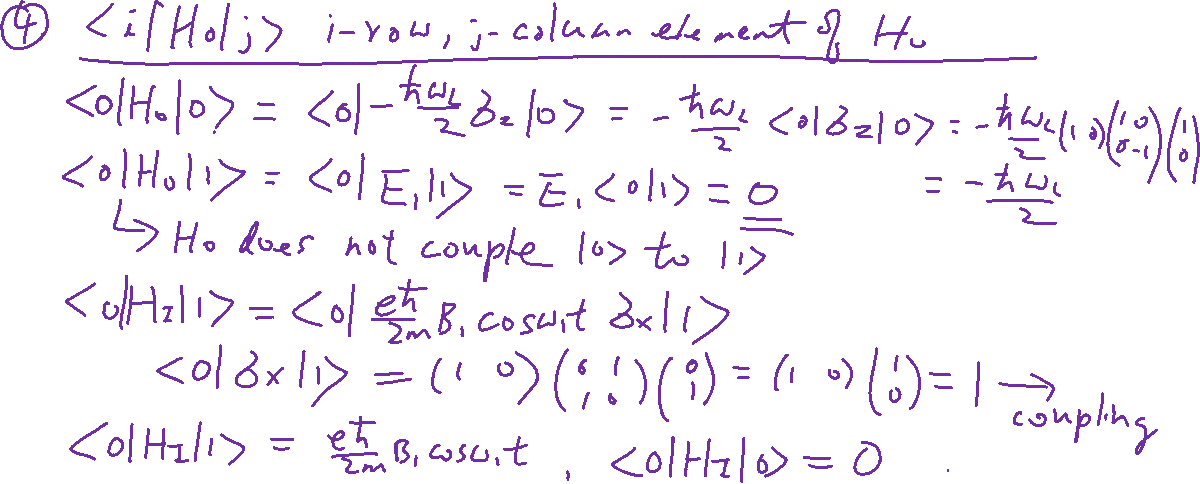 ④ <i|H₀|j> i-row, j-column element of H₀
<0|H₀|0> = <0|-ħω_L/2 σ_z|0> = -ħω_L/2 <0|σ_z|0> = -ħω_L/2 (1 0)(1 0; 0 -1)(1; 0)
<0|H₀|1> = <0|E₁|1> = E₁<0|1> = 0 = -ħω_L/2
↳ H₀ does not couple |0> to |1>
<0|H_I|1> = <0| eħ/2m B₁ cosω₁t σ_x|1>
<0|σ_x|1> = (1 0)(0 1; 1 0)(0; 1) = (1 0)(1; 0) = 1 → coupling
<0|H_I|1> = eħ/2m B₁ cosω₁t , <0|H_I|0> = 0 .